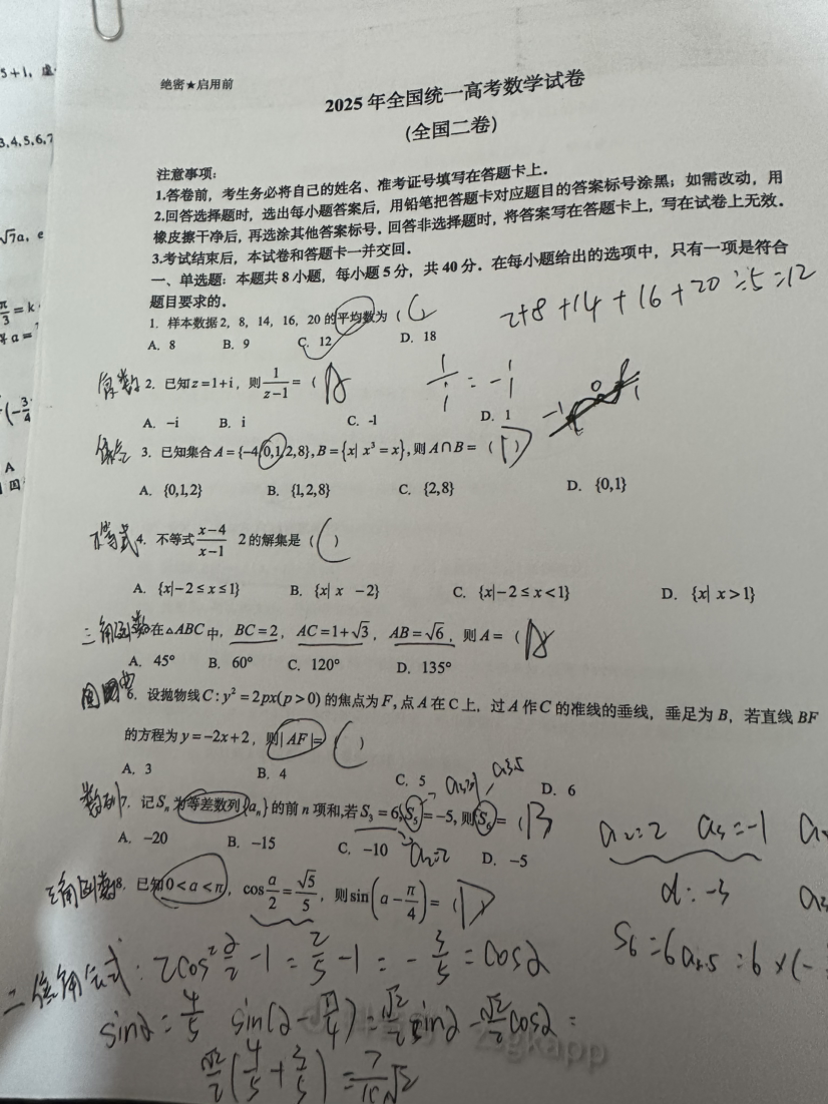 5+1, 虚
3,4,5,6,7
√7a, e
π/3 = k
a =
(-3/4
A
绝密★启用前
2025 年全国统一高考数学试卷
(全国二卷)
注意事项:
1.答卷前,考生务必将自己的姓名、准考证号填写在答题卡上.
2.回答选择题时,选出每小题答案后,用铅笔把答题卡对应题目的答案标号涂黑;如需改动,用
橡皮擦干净后,再选涂其他答案标号.回答非选择题时,将答案写在答题卡上,写在试卷上无效.
3.考试结束后,本试卷和答题卡一并交回.
一、单选题:本题共 8 小题,每小题 5 分,共 40 分.在每小题给出的选项中,只有一项是符合
题目要求的.
2+8+14+16+20÷5=12
1. 样本数据 2, 8, 14, 16, 20 的平均数为 ( C )
A. 8 B. 9 C. 12 D. 18
复数 2. 已知 z=1+i, 则 1/(z-1) = ( A
1/i = -i
A. -i B. i C. -1 D. 1
集合 3. 已知集合 A={-4,0,1,2,8}, B={x| x³=x}, 则 A∩B= ( D )
A. {0,1,2} B. {1,2,8} C. {2,8} D. {0,1}
不等式 4. 不等式 (x-4)/(x-1) 2 的解集是 ( C )
A. {x|-2≤x≤1} B. {x| x -2} C. {x|-2≤x<1} D. {x| x>1}
三角函数 在△ABC 中, BC=2, AC=1+√3, AB=√6, 则 A= ( A
A. 45° B. 60° C. 120° D. 135°
6. 设抛物线 C: y²=2px(p>0) 的焦点为 F, 点 A 在 C 上, 过 A 作 C 的准线的垂线, 垂足为 B, 若直线 BF
的方程为 y=-2x+2, 则|AF|= ( C )
A. 3 B. 4 C. 5 D. 6
数列 7. 记 Sₙ 为等差数列{aₙ}的前 n 项和,若 S₃=6, S₅=-5, 则 S₆= ( B
A. -20 B. -15 C. -10 D. -5
a₂=2
a₂=2 a₃=-1
d=-3
S₆=6a₃.₅=6×(-
三角函数 8. 已知 0<α<π, cos α/2 = √5/5, 则 sin(α-π/4) = ( D
二倍角公式: 2cos² α/2 -1 = 2/5 -1 = -3/5 = cosα
sinα = 4/5 sin(α-π/4) = √2/2 sinα - √2/2 cosα =
√2/2 (4/5 + 3/5) = 7/10 √2
zsgkapp